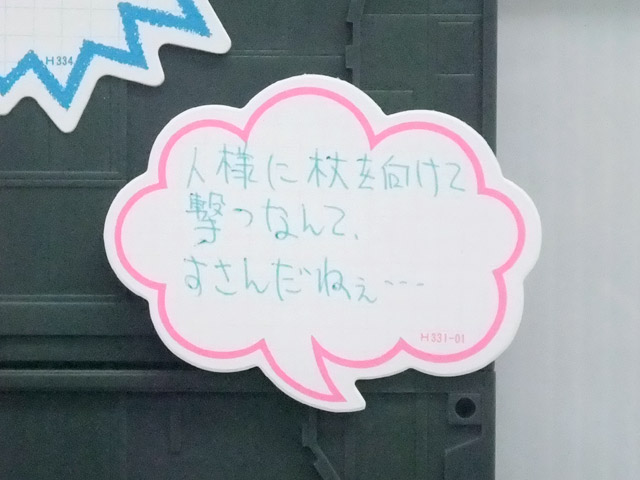 H334
人様に杖を向けて
撃つなんて、
すさんだねぇ…
H331-01